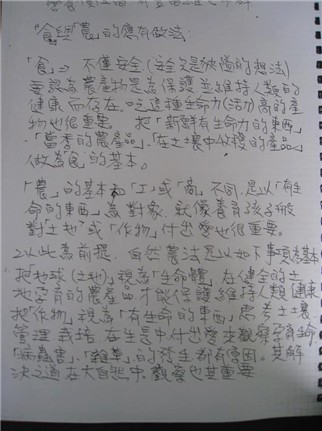 "食"與"農"的應有做法:
「食」=> 不僅安全(安全是狹隘的想法)
要認為農產物是為保護並維持人類的
健康而存在。這種生命力(活力)高的產
物也很重要。 把「新鮮有生命力的東西」
「當季的農產品」、「在土壤中收穫的產品」
做為食的基本。
「農」的基本和「工」或「商」不同,是以「有生
命的東西」為對象,就像養育孩子般
對"土地"或「作物」付出愛也很重要。
以此為前提,自然農法是以如下事項為基本
把「地球(土地)」視為「生命體」在健全的土
地孕育的農產品,才能保護維持人類健康
把「作物」視為「有生命的東西」思考土壤
管理、栽培,在生長中付出愛來觀察孕育
「病蟲害」、「雜草」的發生都有原因。其解
決之道在大自然中,觀察也甚重要